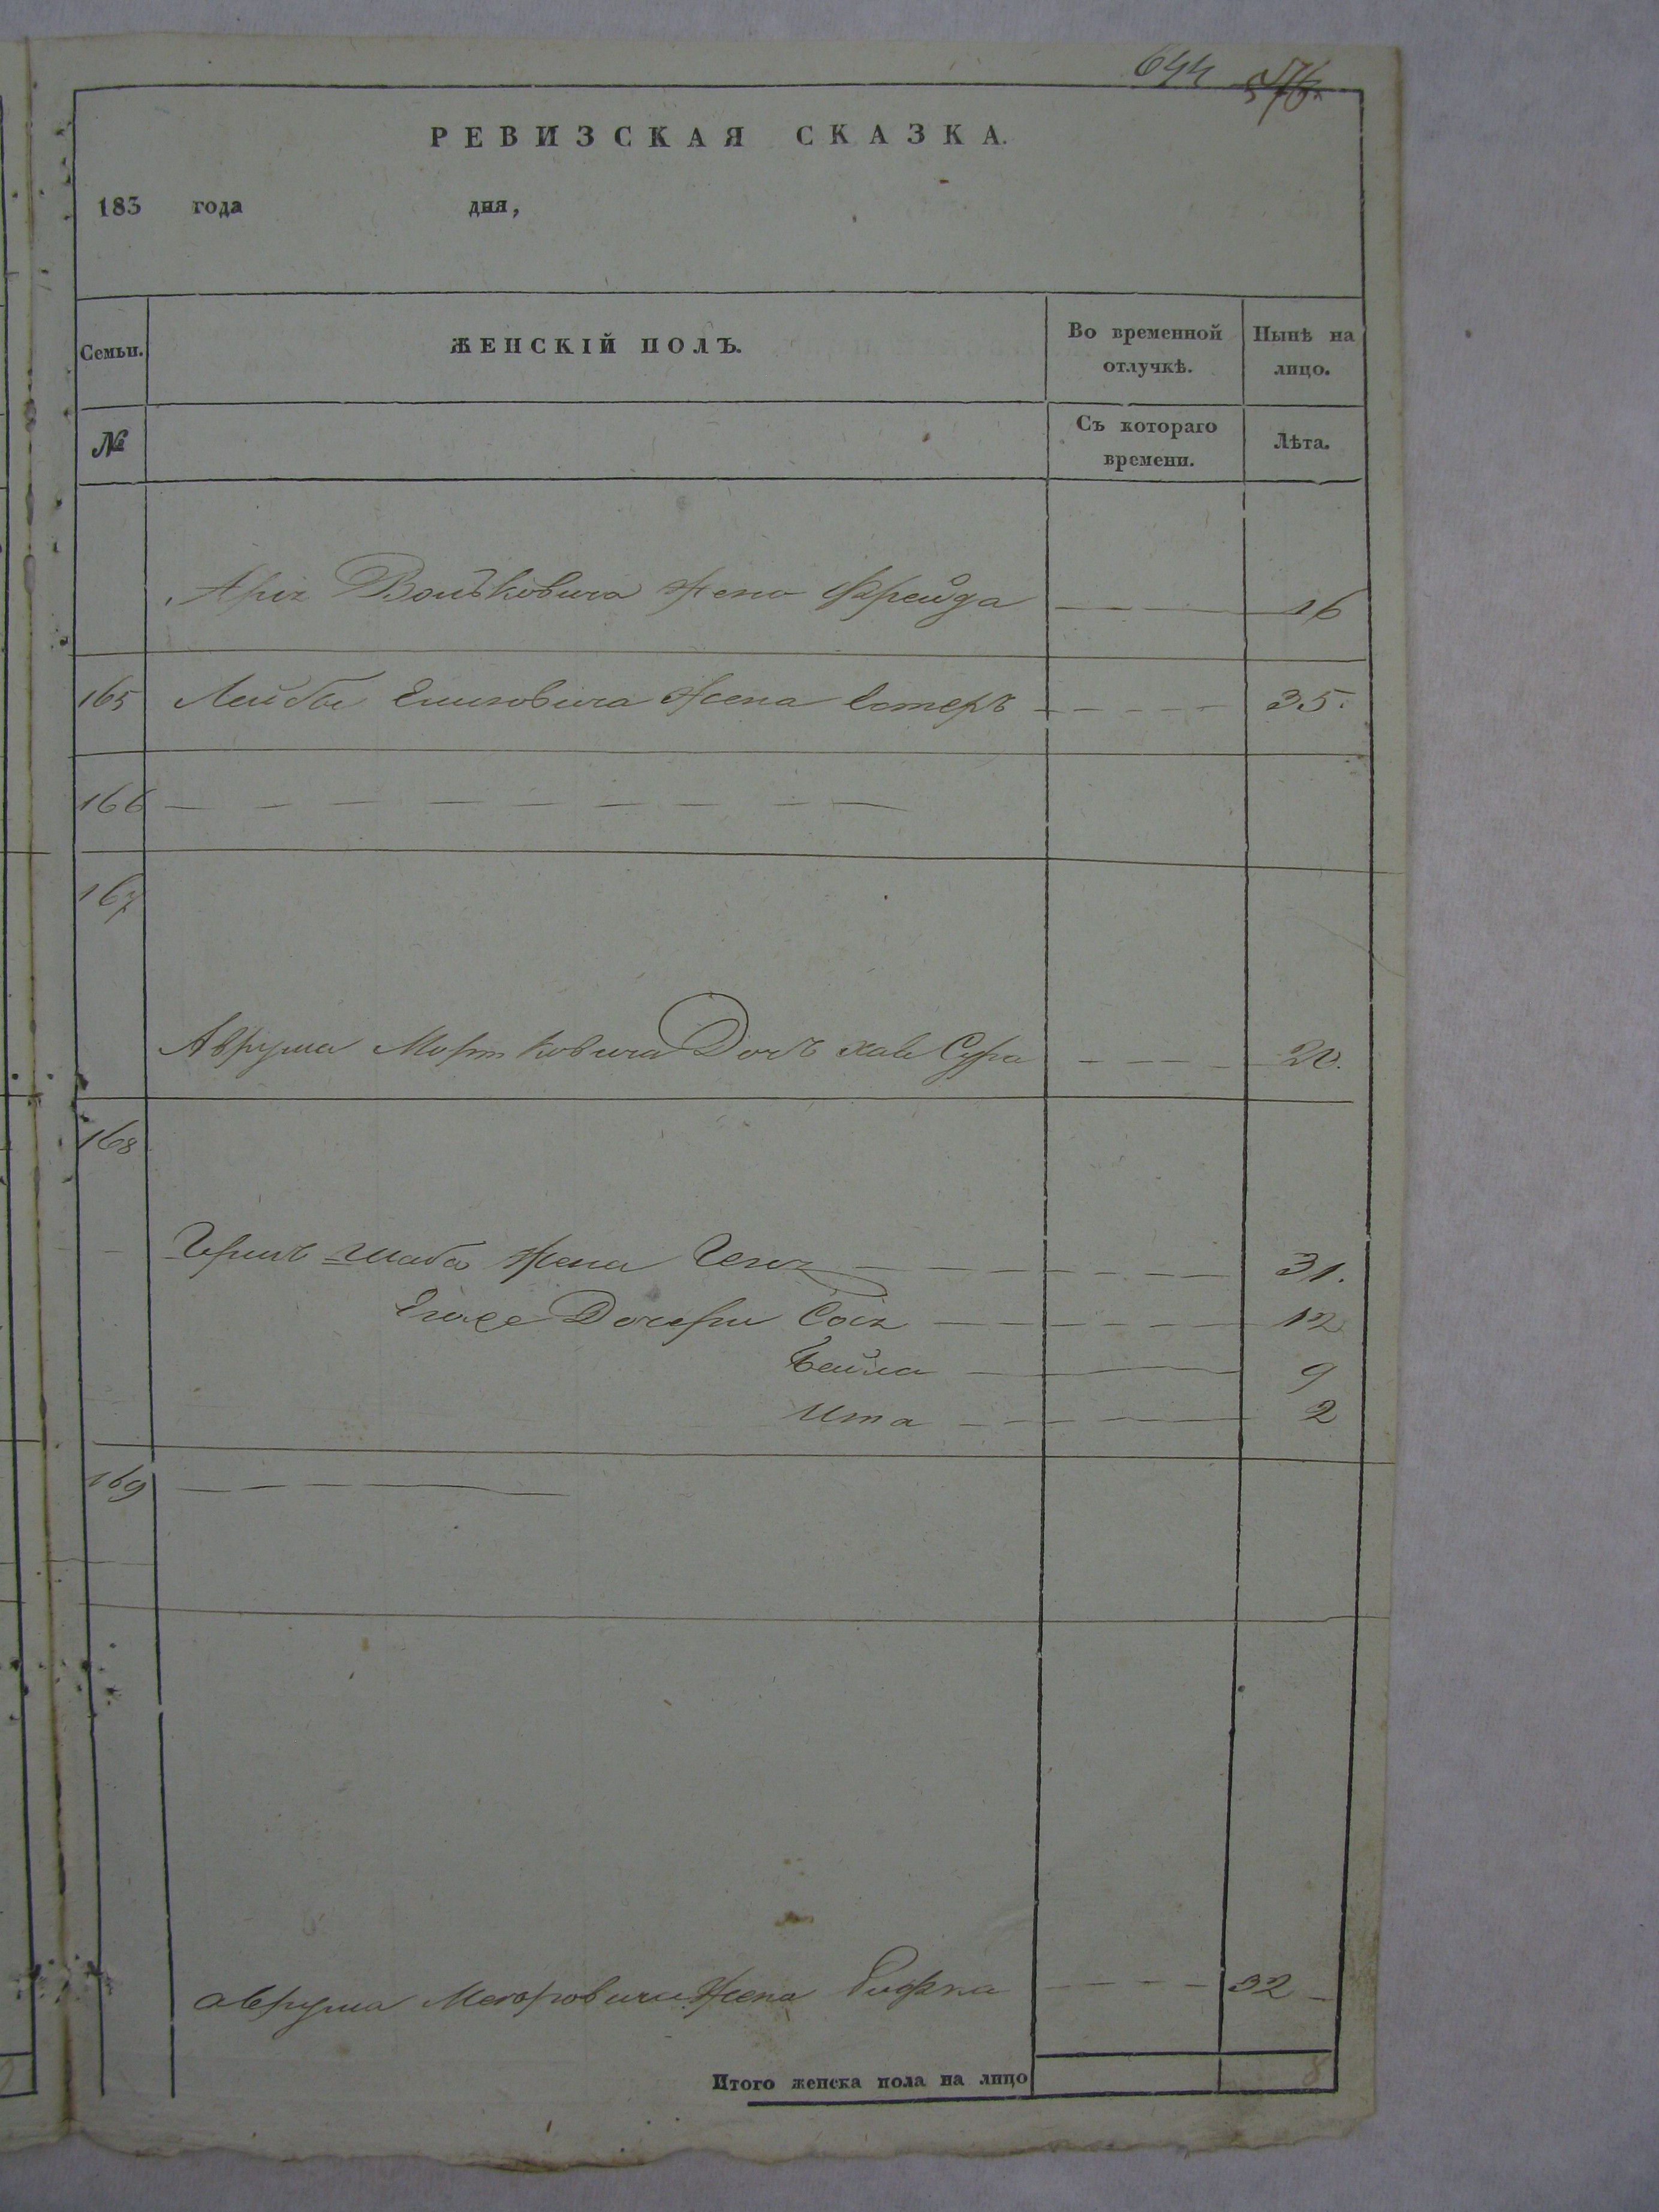 644 576
РЕВИЗСКАЯ СКАЗКА.
183 года дня,
Семьи. ЖЕНСКІЙ ПОЛЪ. Во временной отлучкѣ. Нынѣ на лицо.
№ Съ котораго времени. Лѣта.
Арія Волковича жена Фрейда — — — 16
165 Лейбы жена Естеръ — — — — 35.
166 — — — — — — — — —
167
Аврума Мортковича Дочь хаве Сура — — — — 20.
168
Гершъ жена — — — — — — 31.
Дочери Сося — — — — — — 12
Бейла — — — 9
Ита — — — — — 2
169 — — — — —
аврума жена Рифка — — — — 32
Итого женска пола на лицо 8